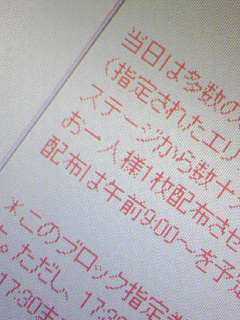 当日は多数の
(指定されたエリ
ステージから数十
お一人様1枚配布させ
配布は午前9:00～を予
＊このブロック指定
。ただし、17:30
17:30ま